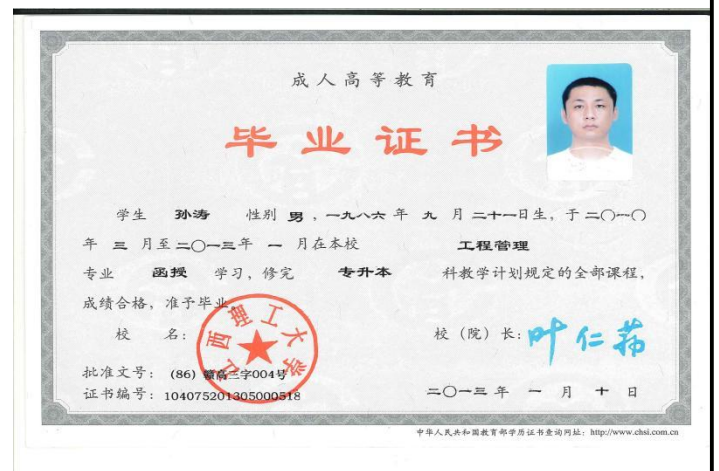 成人高等教育
毕业证书
学生 孙涛 性别 男，一九八六年 九 月二十一日生，于二〇一〇
年 三 月至二〇一三年 一 月在本校 工程管理
专业 函授 学习，修完 专升本 科教学计划规定的全部课程，
成绩合格，准予毕业。
校 名：
江西理工大学
校（院）长：叶仁荪
批准文号：(86) 赣高三字004号
证书编号：104075201305000518
二〇一三年 一 月 十 日
中华人民共和国教育部学历证书查询网址：http://www.chsi.com.cn